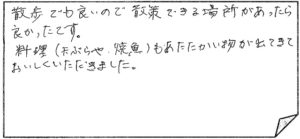 散歩でも良いので散策できる場所があったら
良かったです。
料理(天ぷらや、焼魚)もあたたかい物が出てきて
おいしくいただきました。